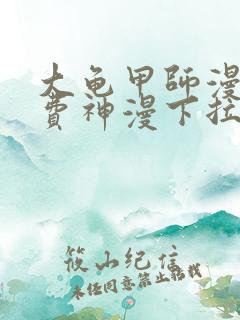 大龟甲师漫
费神漫下拉
筱山纪信
未经同意禁止转载